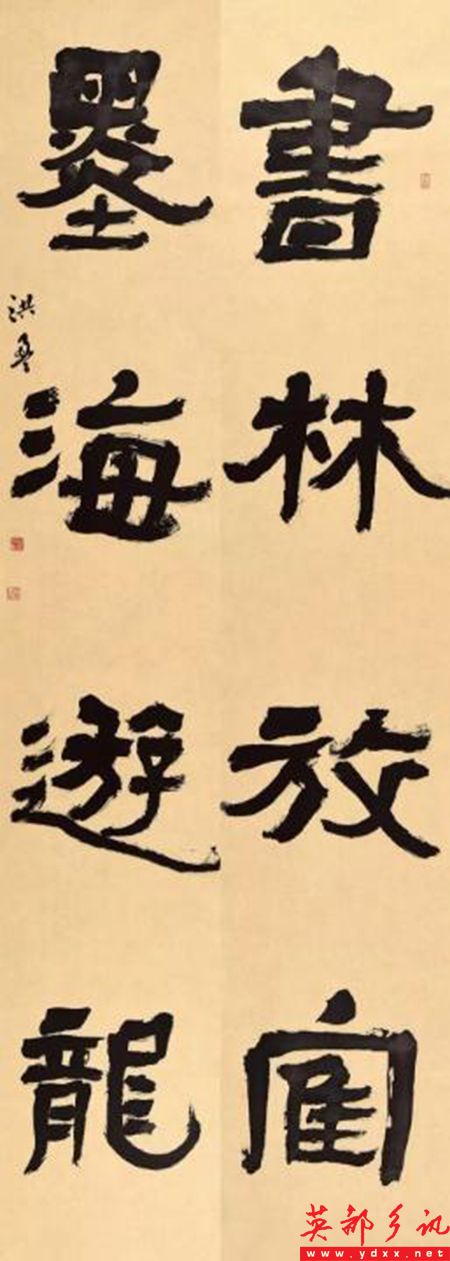 書林放寉
墨海遊龍
洪
英都乡讯
www.ydxx.net